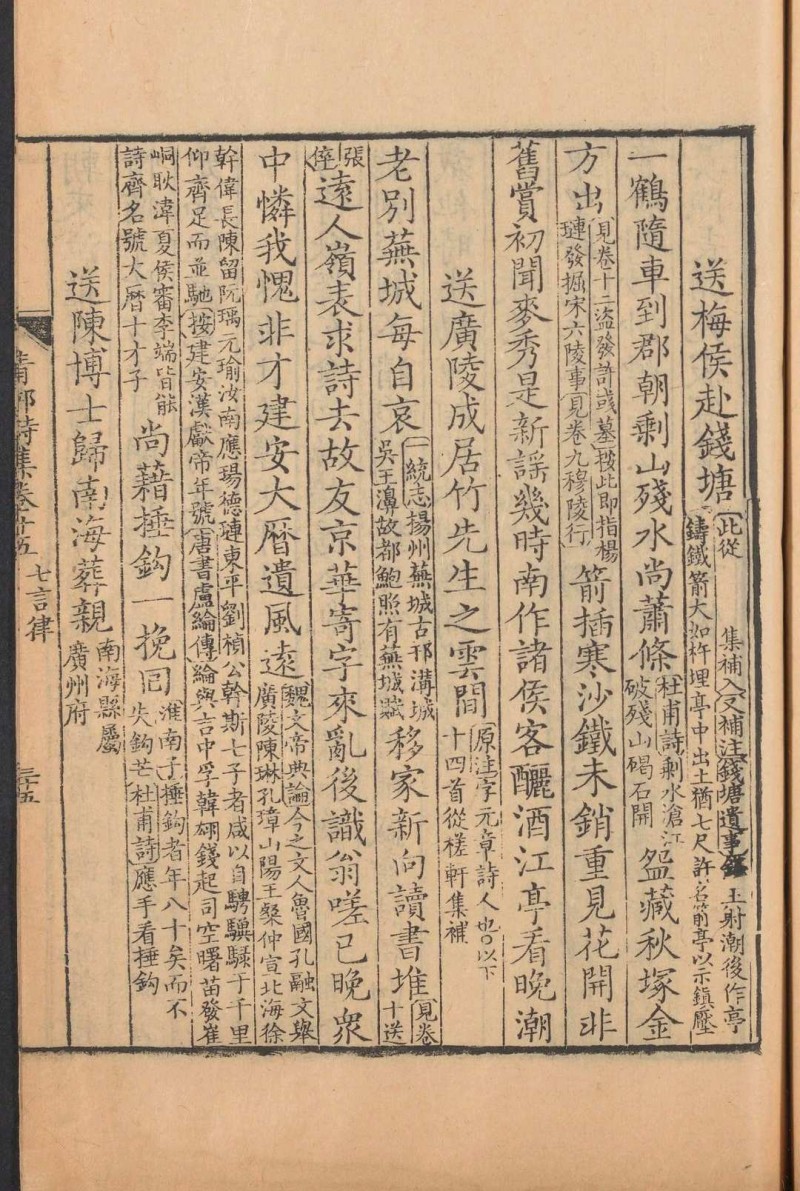 送梅侯赴錢塘
此從集補入又補注錢塘遺事錢王射潮後作亭
鑄鐵箭大如杵埋亭中出土猶七尺許名箭亭以示鎮壓
一鶴隨車到郡朝剩山殘水尚蕭條
杜甫詩剩水滄江
破殘山碣石開
盌藏秋塚金
方出
見卷十二盜發許彧墓按此即指楊
璉發掘宋六陵事見卷九穆陵行
箭插寒沙鐵未銷重見花開非
舊賞初聞麥秀是新謠幾時南作諸侯客釃酒江亭看晚潮
送廣陵成居竹先生之雲間
原注字元章詩人也○以下
十四首從槎軒集補
老別蕪城每自哀
一統志揚州蕪城古邗溝城
吳王濞故都鮑照有蕪城賦
移家新向讀書堆
見卷
十送
張
倕
遠人嶺表求詩去故友京華寄字來亂後識翁嗟已晚衆
中憐我愧非才建安大曆遺風遠
魏文帝典論今之文人魯國孔融文舉
廣陵陳琳孔璋山陽王粲仲宣北海徐
幹偉長陳留阮瑀元瑜汝南應瑒德璉東平劉楨公幹斯七子者咸以自騁驥騄于千里
仰齊足而並馳按建安漢獻帝年號唐書盧綸傳綸與吉中孚韓翃錢起司空曙苗發崔
峒耿湋夏侯審李端皆能
詩齊名號大曆十才子
尚藉捶鈎一挽囘
淮南子捶鈎者年八十矣而不
失鈎芒杜甫詩應手看捶鈎
送陳博士歸南海葬親
南海縣屬
廣州府
青邱詩集卷十五 七言律 三十五